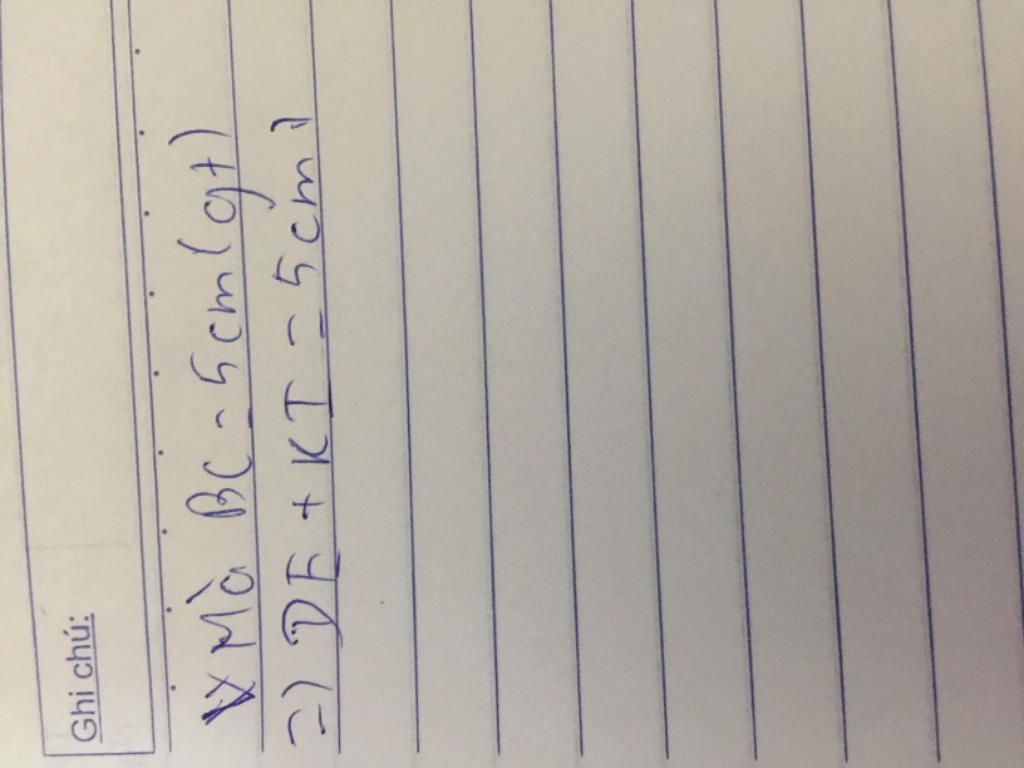 Ghi chú:
Mà BC = 5cm (gt)
=) DF + KI = 5cm